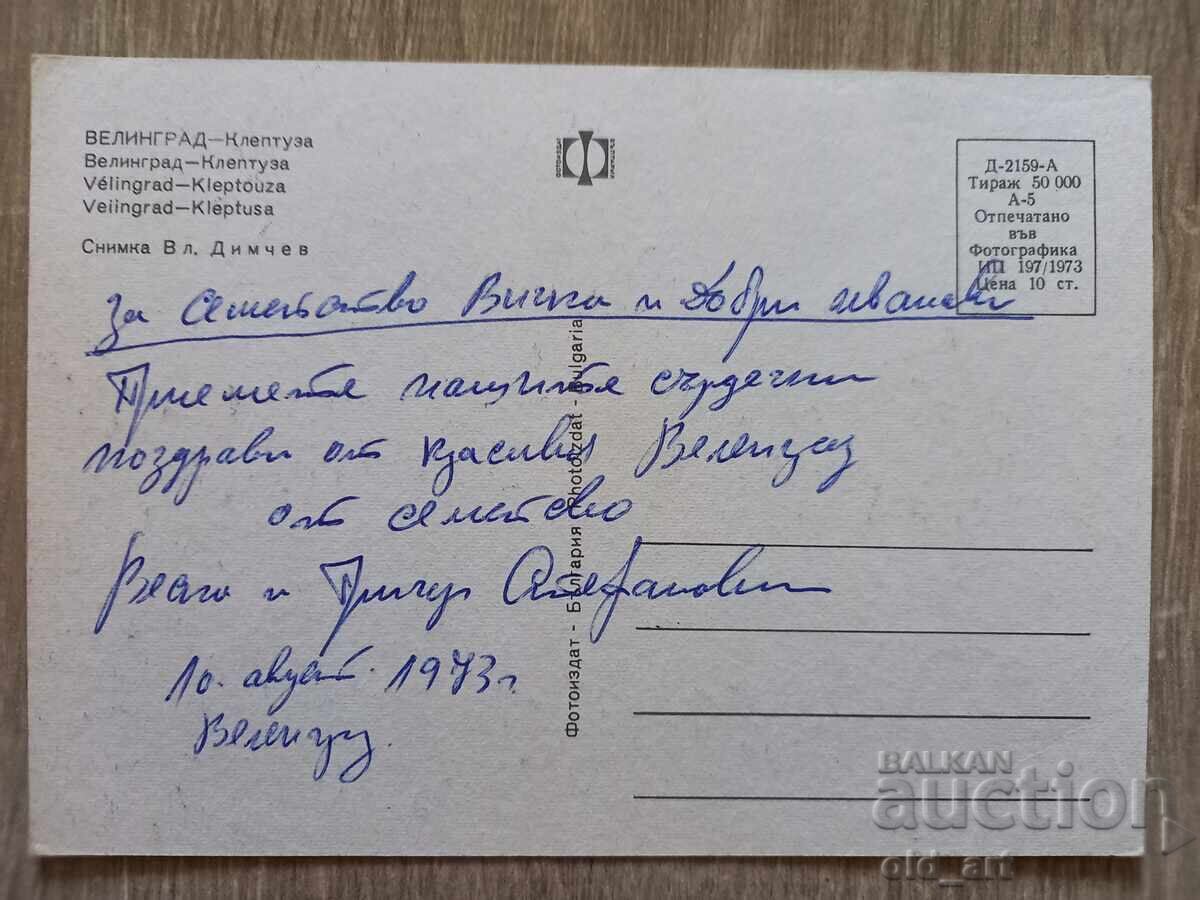 ВЕЛИНГРАД—Клептуза
Велинград—Клептуза
Vélingrad—Kleptouza
Velingrad—Kleptusa
Снимка Вл. Димчев
Д-2159-А
Тираж 50 000
А-5
Отпечатано
във
Фотографика
ИП 197/1973
Цена 10 ст.
за семейство Вичка и Добри Иванови
Приемете нашите сърдечни
поздрави от красивия Веленград
от семейство
и Стефанови
10. август 1973 г.
Веленград.
Фотоиздат - България Photoizdat - Bulgaria
BALKAN
auction
old_art